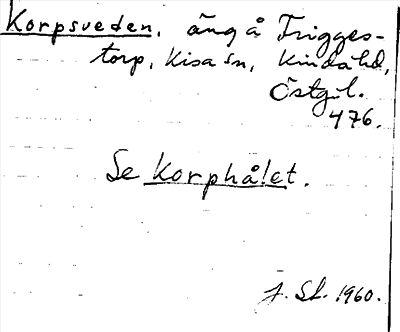 Korpsveden, äng å Trigges-
torp, Kisa sn, Kinda hd,
Östgöt.
476.
Se Korphålet.
1960.